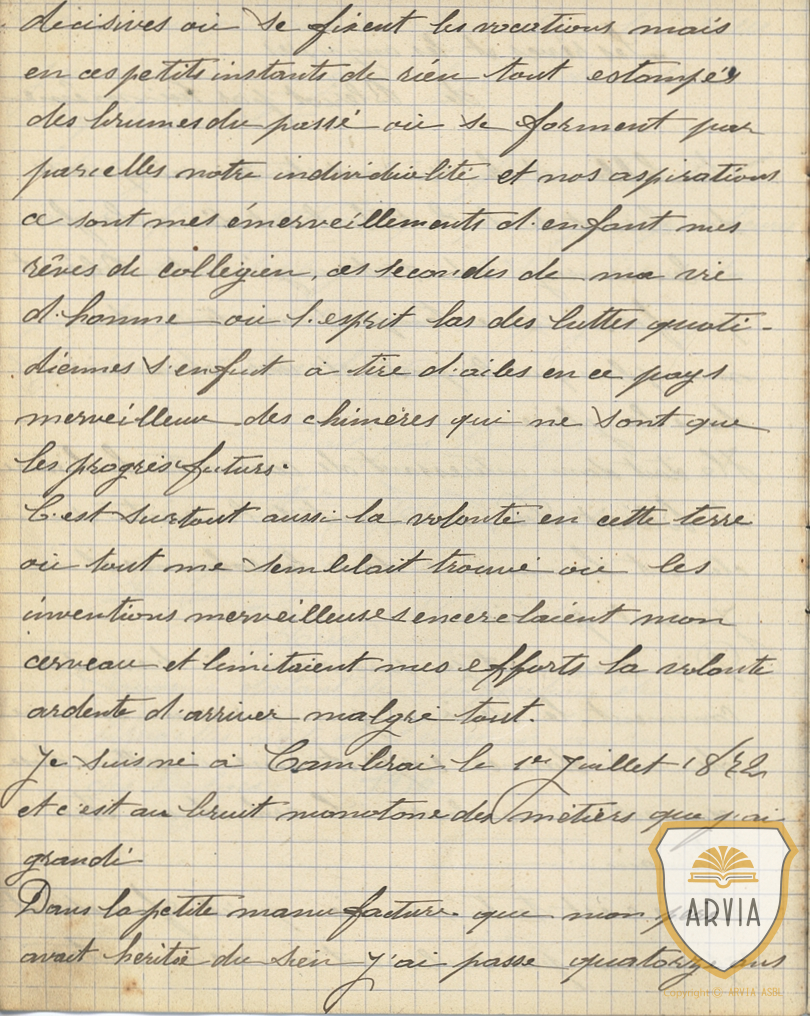 décisives où se fixent les vocations mais
en ces petits instants de rien tout estompés
des brumes du passé où se forment par
parcelles notre individualité et nos aspirations
ce sont mes émerveillements d'enfant mes
rêves de collégien, ces secondes de ma vie
d'homme où l'esprit las des luttes quoti-
diennes s'enfuit à tire d'ailes en ce pays
merveilleux des chimères qui ne sont que
les progrès futurs.
C'est surtout aussi la volonté en cette terre
où tout me semblait trouvé où les
inventions merveilleuses encerclaient mon
cerveau et limitaient mes efforts la volonté
ardente d'arriver malgré tout.
Je suis né à Cambrai le 1er Juillet 1872
et c'est au bruit monotone des métiers que j'ai
grandi
Dans la petite manufacture que mon père
avait héritée du sien j'ai passé quatorze ans
ARVIA
Copyright © ARVIA ASBL